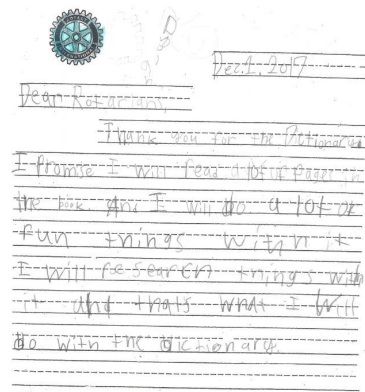 Dec. 1, 2017
Dear Rotarians,
Thank you for the Dictionary
I Promise I will read a lot of pages in
the book. And I will do a lot of
fun things with it
I will research things with
it and thats what I will
do with the dictionary.